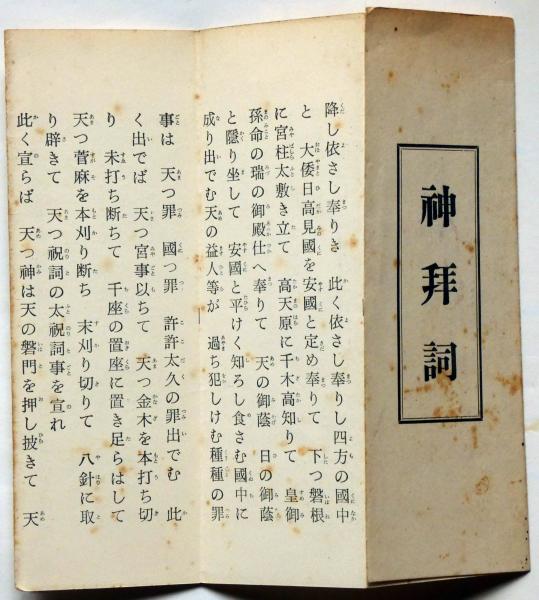 神拝詞
降し依さし奉りき　此く依さし奉りし四方の國中
と　大倭日高見國を安國と定め奉りて　下つ磐根
に宮柱太敷き立て　高天原に千木高知りて　皇御
孫命の瑞の御殿仕へ奉りて　天の御蔭　日の御蔭
と隱り坐して　安國と平けく知ろし食さむ國中に
成り出でむ天の益人等が　過ち犯しけむ種種の罪
事は　天つ罪　國つ罪　許許太久の罪出でむ　此
く出でば　天つ宮事以ちて　天つ金木を本打ち切
り　末打ち断ちて　千座の置座に置き足らはして
天つ菅麻を本刈り断ち　末刈り切りて　八針に取
り辟きて　天つ祝詞の太祝詞事を宣れ
此く宣らば　天つ神は天の磐門を押し披きて　天